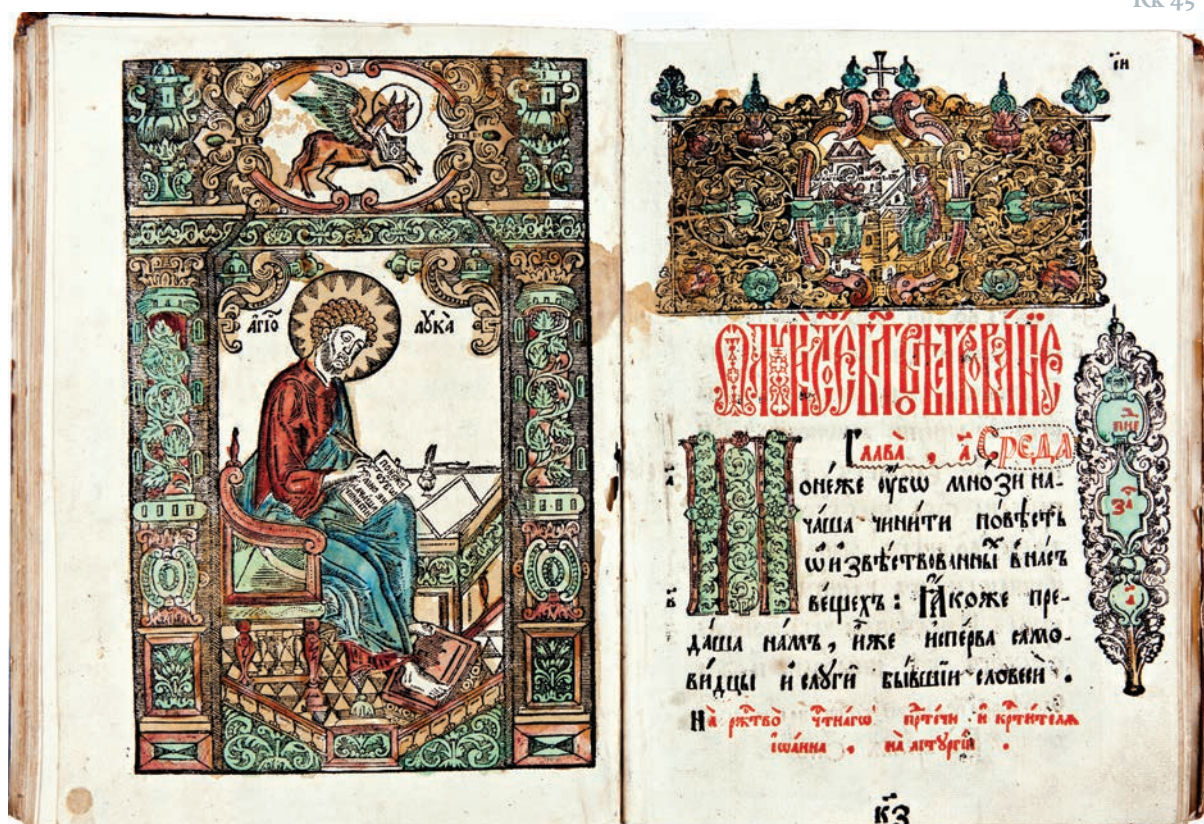 Кк 45
а҆́гїо
лꙋка̀
сн
Ѿ лꙋкѝ ст҃о́е бл҃говѣствова́нїе
Глава̀, а҃. Среда
Поне́же ᲂу҆́бѡ мно́зи на-
ча́ша чини́ти по́вѣсть
ѡ҆ и҆звѣ́ствованныⷯ в на́съ
ве́щехъ: ꙗ҆́коже пре-
да́ша на́мъ, и҆̀же и҆спе́рва само-
ви́дцы и҆ слꙋгѝ бы́вшїи словесѝ.
На ржⷭ҇тво̀ чⷭ҇тна́гѡ прⷣте́чи и҆ крⷭ҇ти́телѧ
і҆ѡа́нна, на лїтꙋргі́и.
за҃
а
в
к҃з